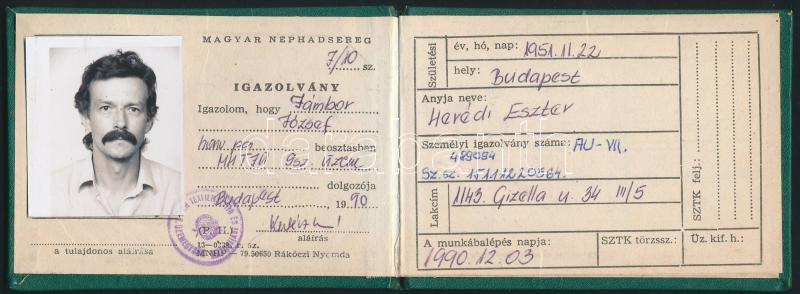 MAGYAR NÉPHADSEREG
7/10 sz.
IGAZOLVÁNY
Igazolom, hogy Jámbor
József
beosztásban
dolgozója
Budapest 1990
(P. H.)
aláírás
a tulajdonos aláírása
MNHF — 79.50650 Rákóczi Nyomda
Születési
év, hó, nap: 1951. 11. 22
hely: Budapest
Anyja neve:
Herédi Eszter
Személyi igazolvány száma: AU-VII.
489094
Sz.sz.
Lakcím
1143. Gizella u. 34 III/5
A munkábalépés napja:
1990. 12. 03
SZTK törzssz.:
Üz. kif. h.:
SZTK felj.:
darabanth.com